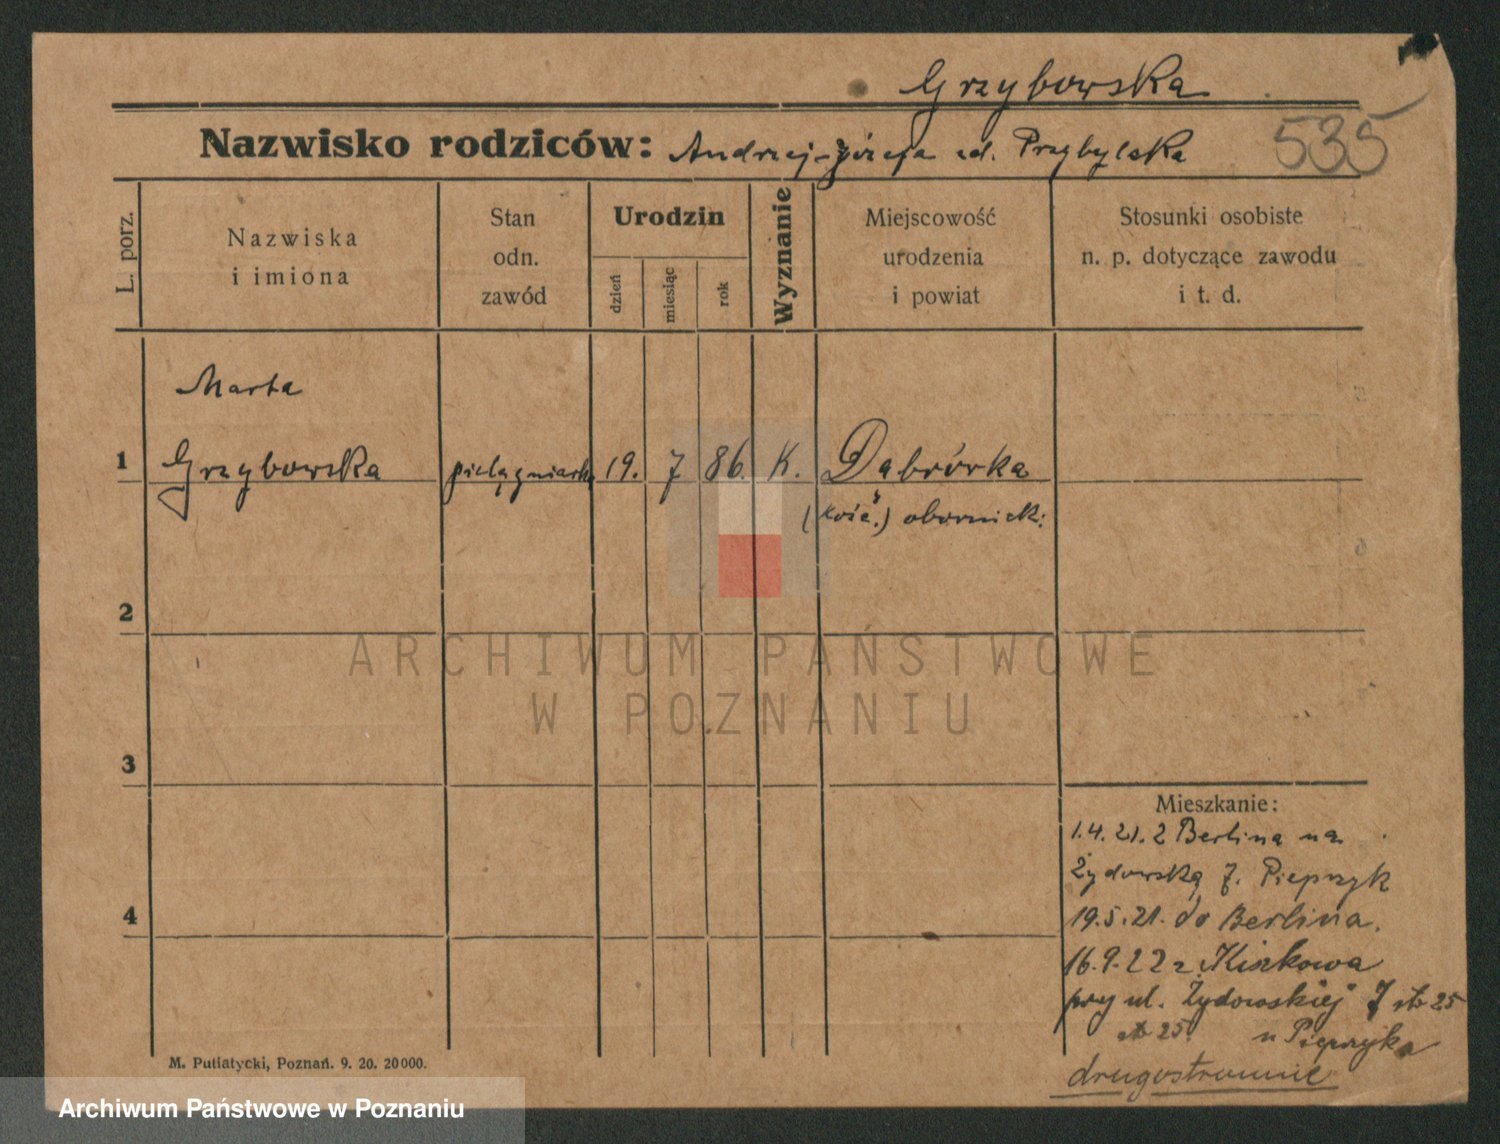 Grzybowska
Nazwisko rodziców: Andrzej-Józefa zd. Przybylska
535
L. porz.
Nazwiska
i imiona
Stan
odn.
zawód
Urodzin
dzień
miesiąc
rok
Wyznanie
Miejscowość
urodzenia
i powiat
Stosunki osobiste
n. p. dotyczące zawodu
i t. d.
Marta
1 Grzybowska pielęgniarka 19. 7 86. K. Dąbrówka
(kość.) obornick:
2
ARCHIWUM PAŃSTWOWE
W POZNANIU
3
Mieszkanie:
1.4.21. z Berlina na
Żydowską 7. Pieprzyk
4
19.5.21. do Berlina.
16.9.22 z Kiszkowa
przy ul. Żydowskiej 7 25
25 u Pieprzyka
drugostronnie
M. Putiatycki, Poznań. 9. 20. 20000.
Archiwum Państwowe w Poznaniu